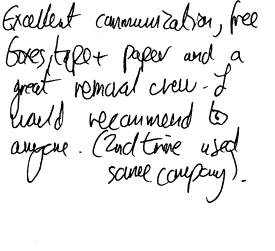 Excellent communication, free
boxes, tape + paper and a
great removal crew. I
would recommend to
anyone. (2nd time used
same company).